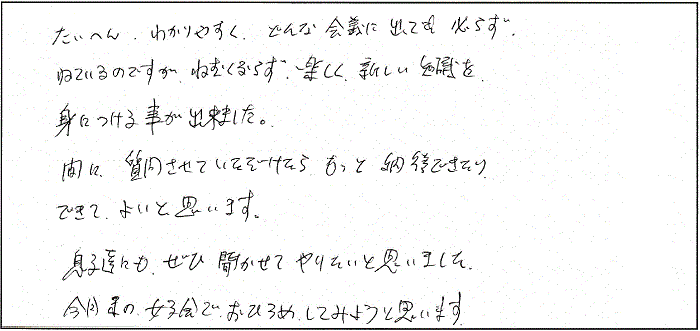 たいへん、わかりやすく、どんな会議に出ても必らず、
ねているのですが、ねむくならず、楽しく、新しい知識を
身につける事が出来ました。
間に、質問させていただけたら、もっと納得できたり
できて、よいと思います。
息子達にも、ぜひ聞かせてやりたいと思いました。
今月末の女子会で、おひろめしてみようと思います